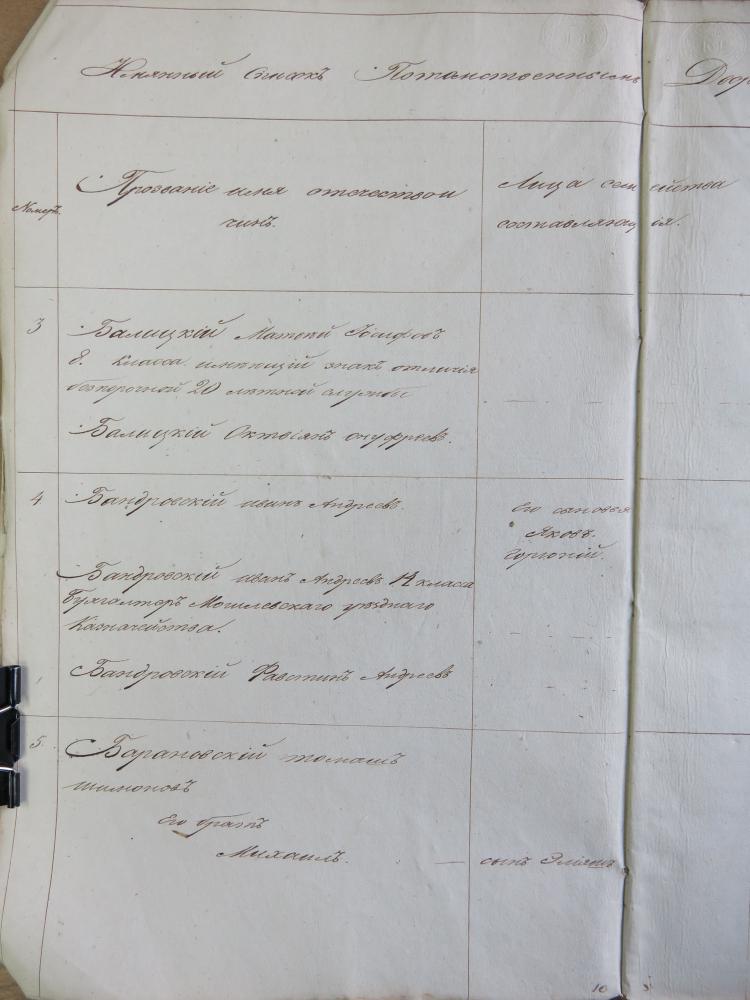 Имянный Списокъ Потомственнымъ Двор
Номеръ.
Прозваніе имя отчество и
чинъ.
Лица семейства
составляющія.
3
Балицкій Матвей Іосифовъ
8. класса имеющій знакъ отличія
безпорочной 20 летней службы
Балицкій Октвіянъ онуфреевъ.
4
Бандровскій иванъ Андреевъ.
Его сыновья
Яковъ.
Бандровскій иванъ Андреевъ 14 класа
бухгалтеръ Могилевскаго уезднаго
Казначейства.
Бандровскій Фавстинъ Андреевъ
5.
Барановскій томашъ
шимоновъ
Его братъ
Михаилъ.
сынъ
10